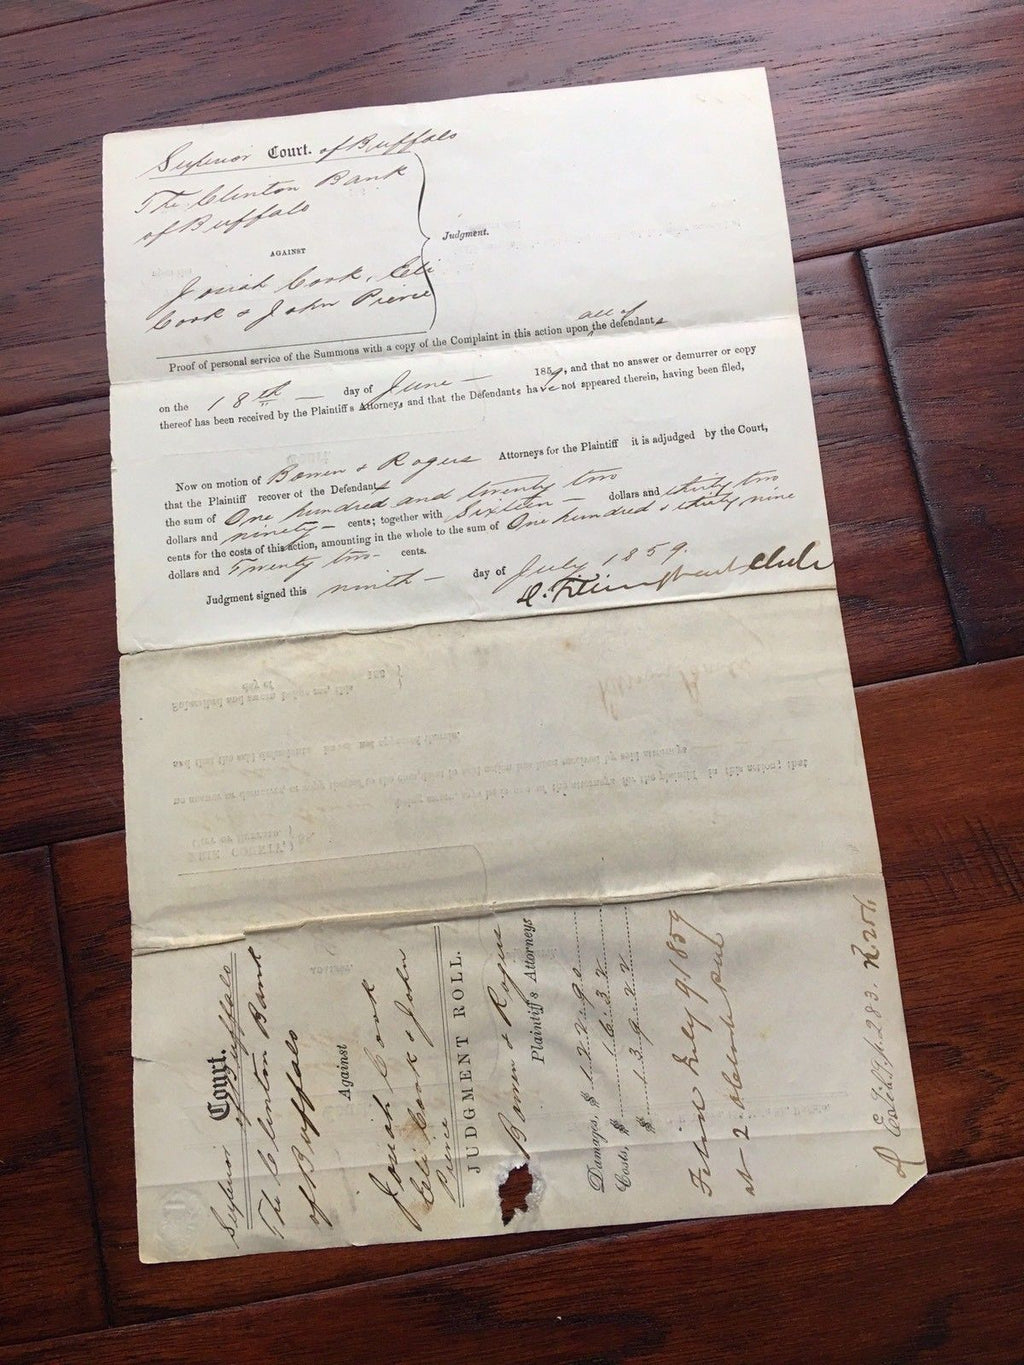 Superior Court. of Buffalo
The Clinton Bank
of Buffalo
AGAINST
Josiah Cook, Eli
Cook & John Pierce
Judgment.
all of
Proof of personal service of the Summons with a copy of the Complaint in this action upon the defendants
on the 18th day of June 1859, and that no answer or demurrer or copy
thereof has been received by the Plaintiff's Attorneys, and that the Defendants have not appeared therein, having been filed,
Now on motion of Bowen & Rogers Attorneys for the Plaintiff it is adjudged by the Court,
that the Plaintiff recover of the Defendants
the sum of One hundred and twenty two
dollars and ninety cents; together with Sixteen dollars and thirty two
cents for the costs of this action, amounting in the whole to the sum of One hundred & thirty nine
dollars and Twenty two cents.
Judgment signed this ninth day of July 1859.
Clerk
Superior Court. of Buffalo
The Clinton Bank
of Buffalo
Against
Josiah Cook
Eli Cook & John
Pierce
JUDGMENT ROLL.
Bowen & Rogers
Plaintiff's Attorneys
Damages, $ 122.90
Costs, $ 16.32
$ 139.22
Filed July 9, 1859
at 2 o'clock P.M.